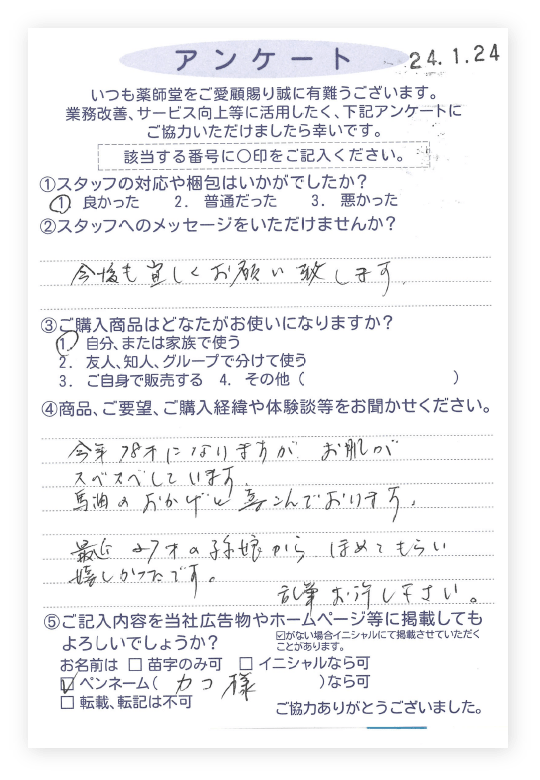 アンケート
24.1.24
いつも薬師堂をご愛顧賜り誠に有難うございます。
業務改善、サービス向上等に活用したく、下記アンケートに
ご協力いただけましたら幸いです。
該当する番号に〇印をご記入ください。
①スタッフの対応や梱包はいかがでしたか?
1. 良かった 2. 普通だった 3. 悪かった
②スタッフへのメッセージをいただけませんか?
今後も宜しくお願い致します.
③ご購入商品はどなたがお使いになりますか?
1. 自分、または家族で使う
2. 友人、知人、グループで分けて使う
3. ご自身で販売する 4. その他( )
④商品、ご要望、ご購入経緯や体験談等をお聞かせください。
今年78才になりますが お肌が
スベスベしています.
馬油のおかげと喜こんでおります.
最近 27才の孫娘から ほめてもらい
嬉しかったです。
乱筆お許し下さい。
⑤ご記入内容を当社広告物やホームページ等に掲載しても
よろしいでしょうか?
☑がない場合イニシャルにて掲載させていただく
ことがあります。
お名前は □ 苗字のみ可 □ イニシャルなら可
☑ ペンネーム( カコ様 )なら可
□ 転載、転記は不可
ご協力ありがとうございました。